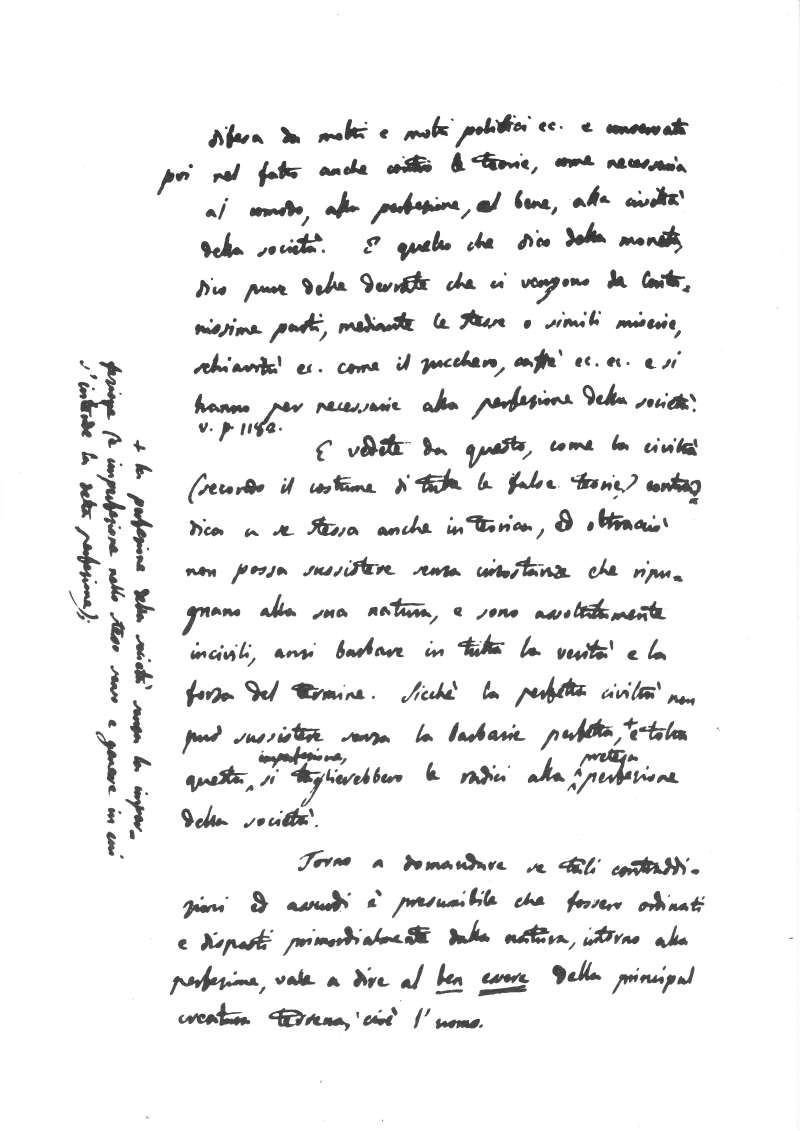 difesa da molti e molti politici ec. e conservata
poi nel fatto anche contro le teorie, come necessaria
al comodo, alla perfezione, al bene, alla civiltà
della società. E quello che dico della moneta,
dico pure delle derrate che ci vengono da lonta-
nissime parti, mediante le stesse o simili miserie,
schiavitù ec. come il zucchero, caffè ec. ec. e si
hanno per necessarie alla perfezione della società.
v. p. 1182.
E vedete da questo, come la civiltà
(secondo il costume di tutte le false teorie) contrad-
dica a se stessa anche in teoria, ed oltracciò
non possa sussistere senza circostanze che ripu-
gnano alla sua natura, e sono assolutamente
incivili, anzi barbare in tutta la verità e la
forza del termine. Sicchè la perfetta civiltà non
può sussistere senza la barbarie perfetta, + e tolta
imperfezione, pretesa
questa, si taglierebbero le radici alla perfezione
della società.
Torno a domandare se tali contraddi-
zioni ed assurdi è presumibile che fossero ordinati
e disposti primordialmente dalla natura, intorno alla
perfezione, vale a dire al ben essere della principal
creatura terrena, cioè l'uomo.
+ la perfezione della società senza la imper-
fezione (e imperfezione nello stesso senso e genere in cui
s'intende la detta perfezione);